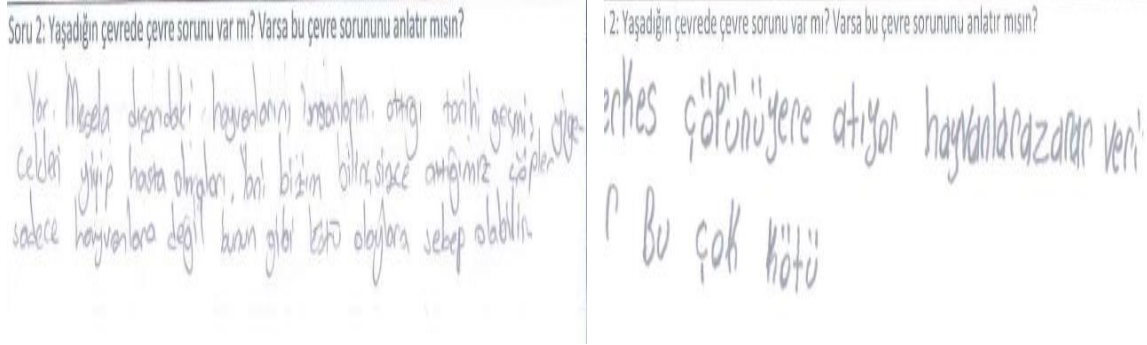 Soru 2: Yaşadığın çevrede çevre sorunu var mı? Varsa bu çevre sorununu anlatır mısın?
Var. Mesela dışarıdaki hayvanların, insanların attığı tarihi geçmiş yiye-
cekleri yiyip hasta olmaları. Yani bizim bilinçsizce attığımız çöpler
sadece hayvanlara değil bunun gibi kötü olaylara sebep olabilir.
2: Yaşadığın çevrede çevre sorunu var mı? Varsa bu çevre sorununu anlatır mısın?
erkes çöpünüyere atıyor hayvanlarazarar veri
r Bu çok kötü